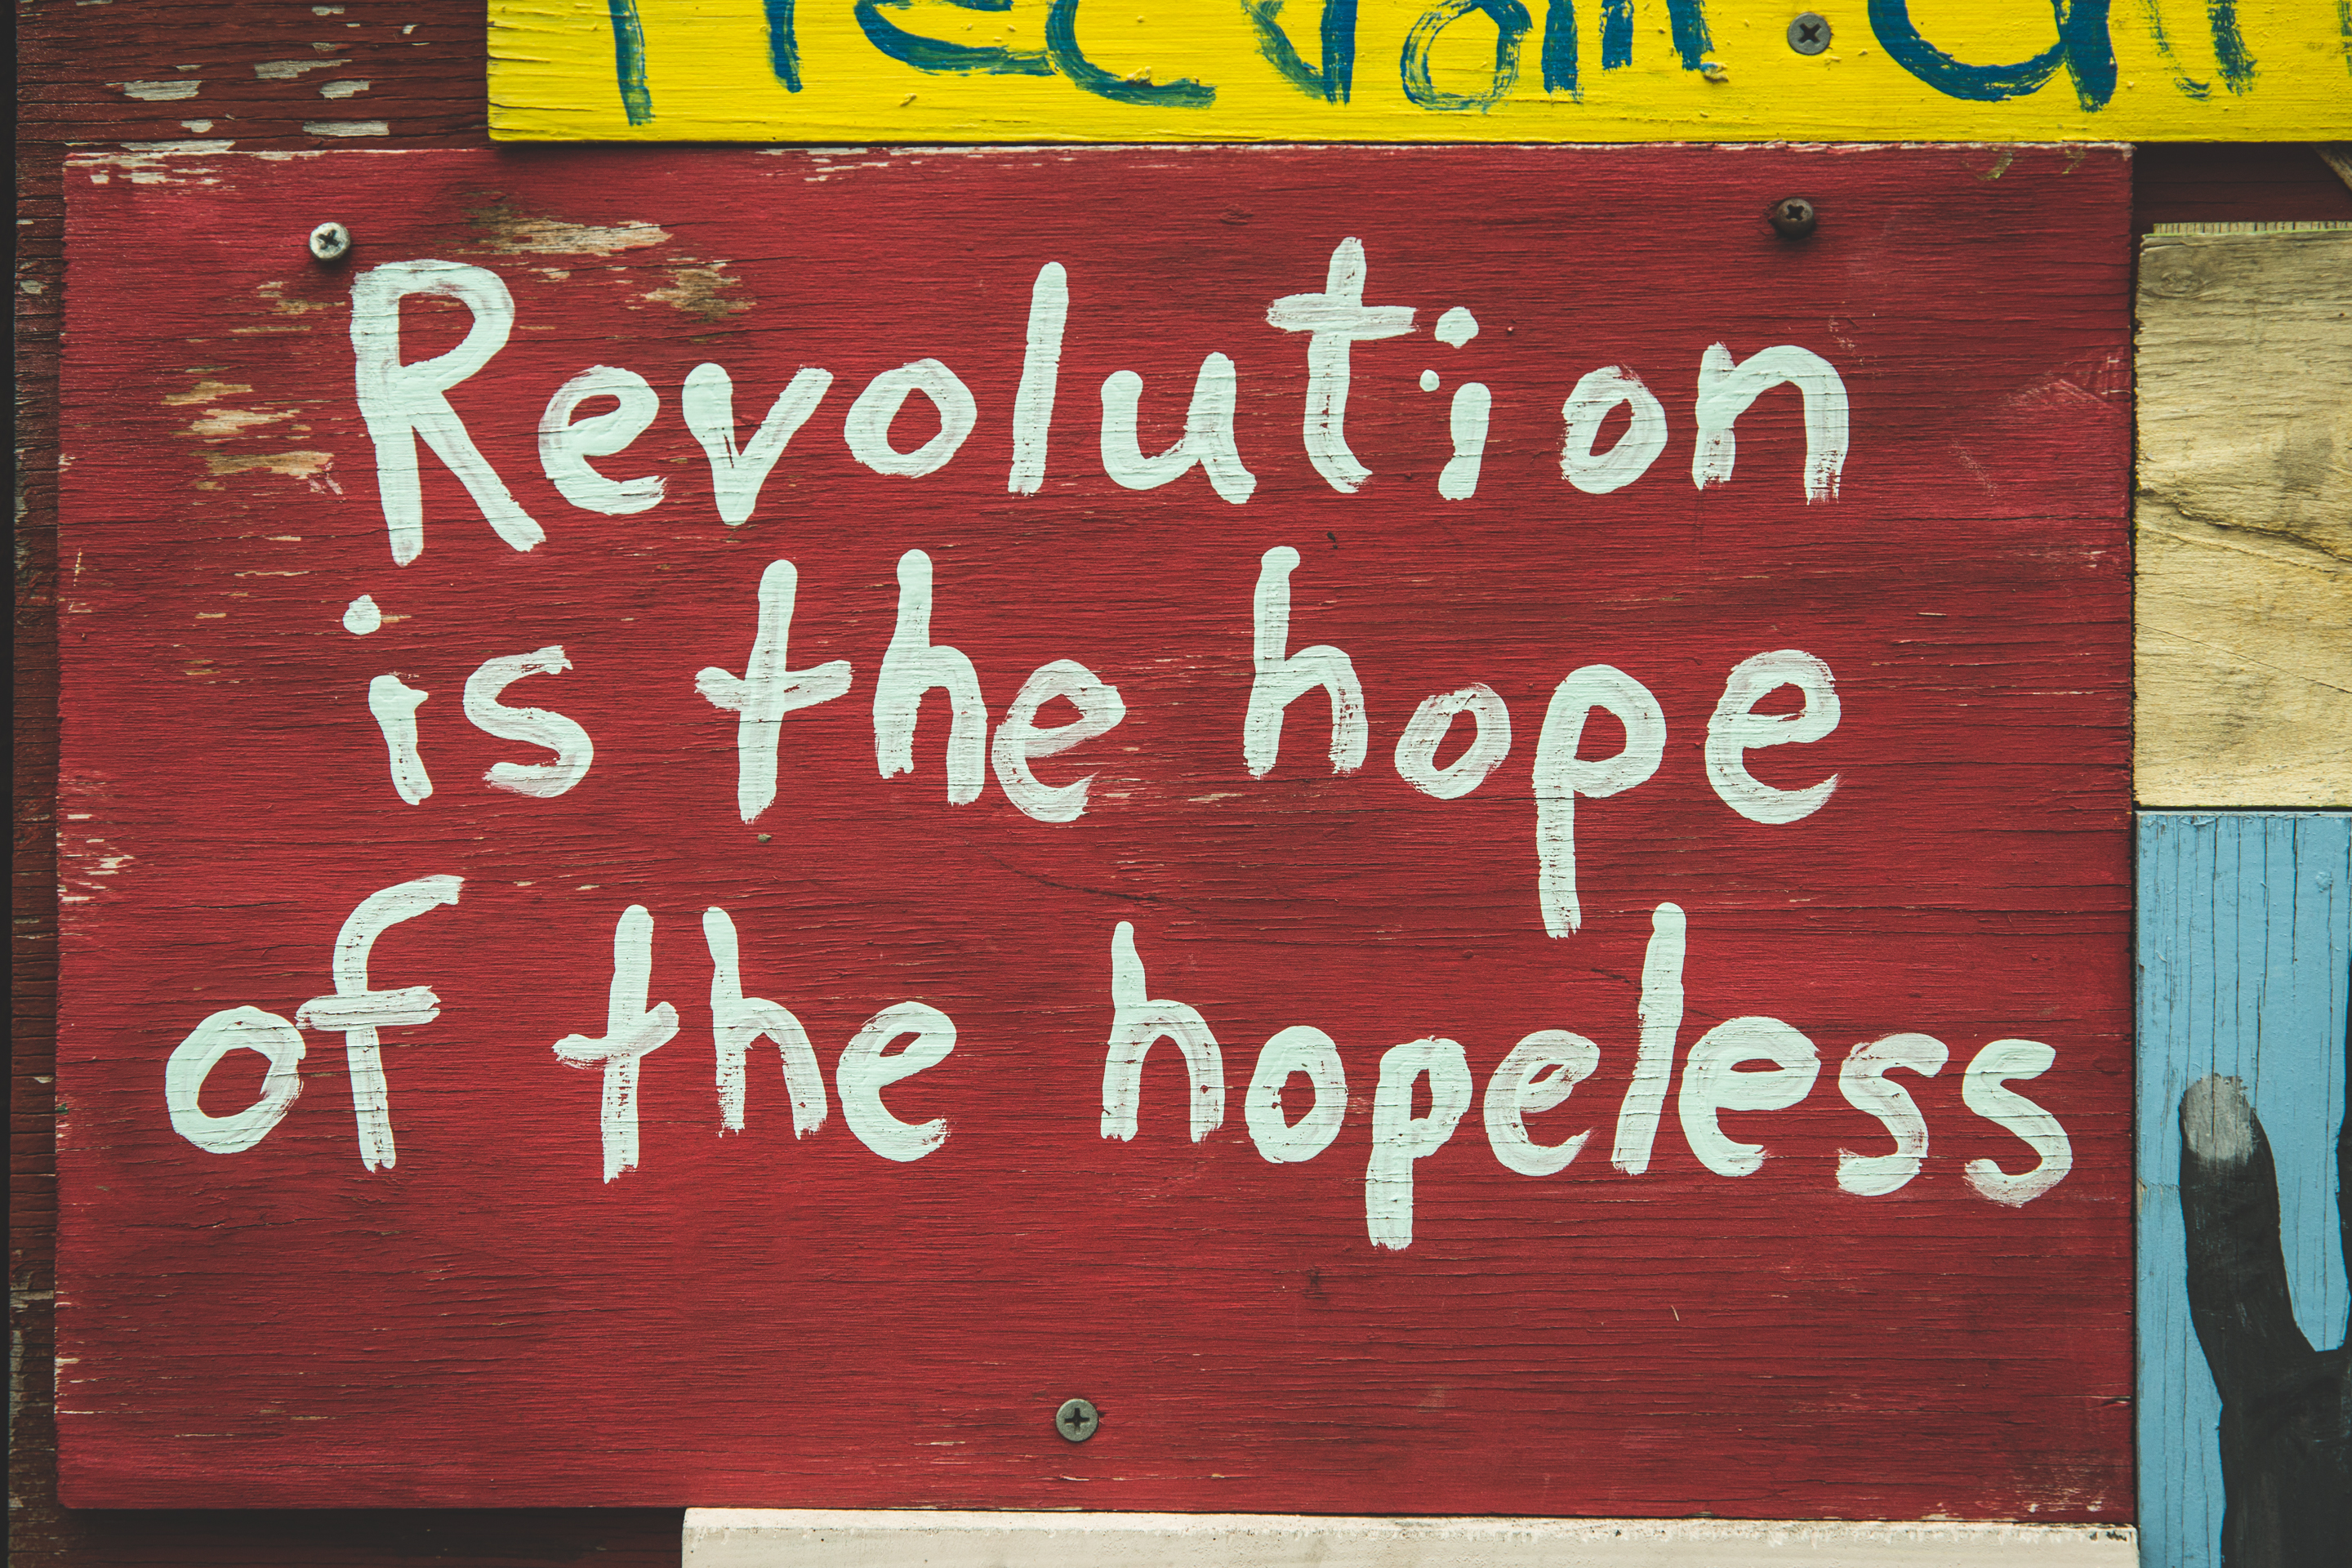 Revolution
is the hope
of the hopeless